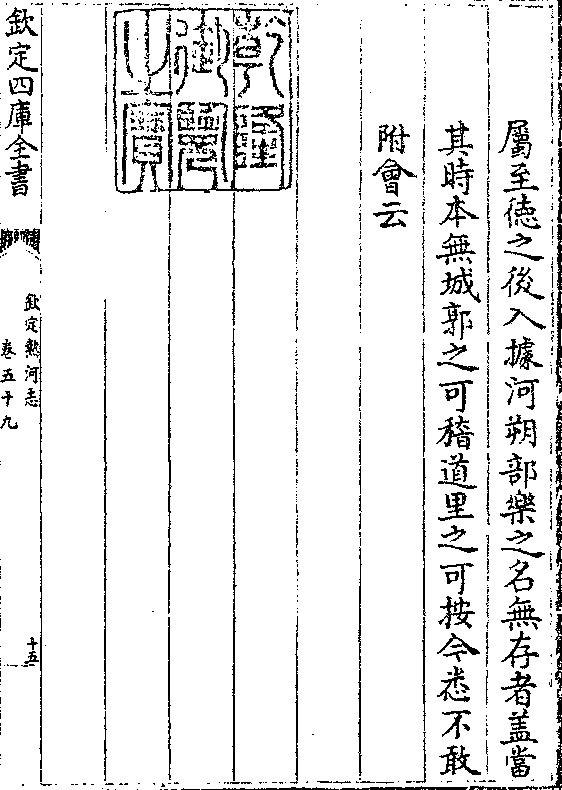 屬至徳之後入據河朔部樂之名無存者盖當
其時本無城郭之可稽道里之可按今悉不敢
附會云
乾隆
御覽
之寶
欽定四庫全書
欽定熱河志
卷五十九
十五